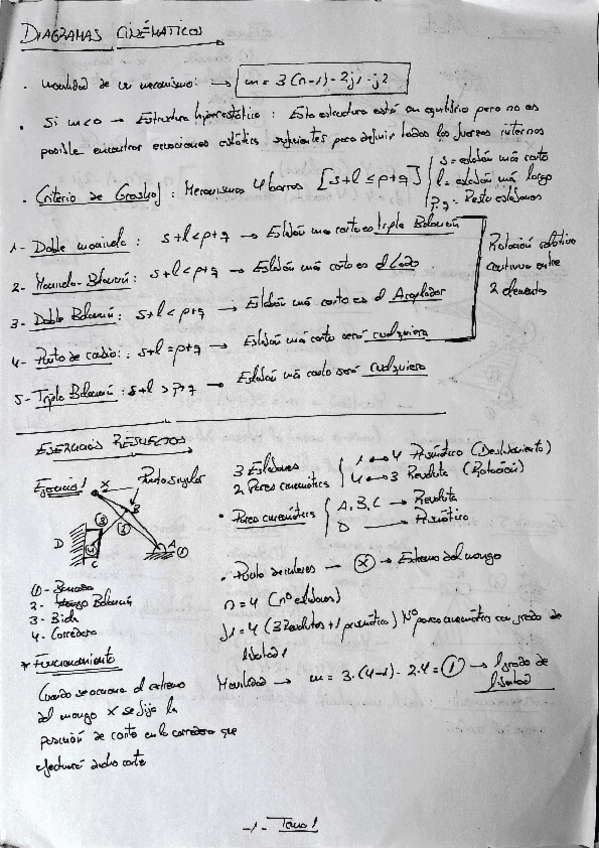 DIAGRAMAS CINÉMATICOS
· Movilidad de un mecanismo: → m = 3(n-1) - 2j1 - j2
· Si m<0 → Estructura hiperestática : Esta estructura está en equilibrio pero no es
posible encontrar ecuaciones estática suficientes para definir todas las fuerzas internas
· Criterio de Grashof : Mecanismos 4 barras [s+l ≤ p+q]
s = eslabón más corto
l = eslabón más largo
p,q = Resto eslabones
1- Doble manivela : s+l < p+q → Eslabón más corto es triple Balancín
2- Manivela-Balancín : s+l < p+q → Eslabón más corto es el Lado
3- Doble Balancín : s+l < p+q → Eslabón más corto es el Acoplador
4- Punto de cambio : s+l = p+q → Eslabón más corto será cualquiera
5- Triple Balancín : s+l > p+q → Eslabón más corto será cualquiera
Rotación relativa
continua entre
2 elementos
EJERCICIOS RESUELTOS
Ejercicio 1
Punto singular
X
B
3
2
D
4
C
A
1
2 - Balancín
3 - Biela
4 - Corredera
3 Eslabones
2 Pares cinemáticos
1 ↔ 4 Prismático (Deslizamiento)
4 ↔ 3 Revoluta (Rotación)
· Pares cinemáticos
A, B, C → Revoluta
D → Prismático
· Punto de interes → X → Extremo del mango
n = 4 (nº eslabones)
j1 = 4 (3 Revolutas + 1 prismático) Nº pares cinemáticos con grado de
libertad 1
Movilidad → m = 3·(4-1) - 2·4 = 1 → 1 grado de
libertad
* Funcionamiento
Cuando se acciona el extremo
del mango X se fija la
posición de corte en la corredera que
efectuará dicho corte
-1- Tema 1